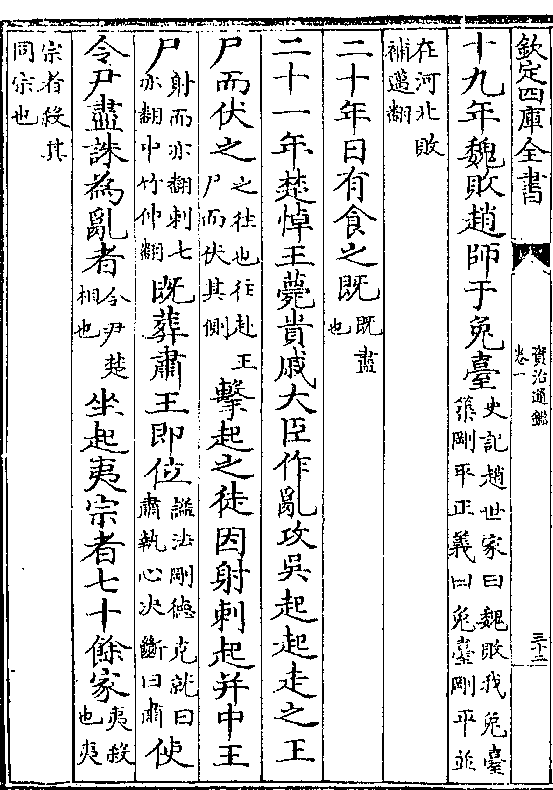 欽定四庫全書
資治通鑑
卷一
三十二
十九年魏敗趙師于兔臺史記趙世家曰魏敗我兔臺築剛平正義曰兔臺剛平並
在河北敗補邁翻
二十年日有食之既既盡也
二十一年楚悼王薨貴戚大臣作亂攻吳起起走之王
尸而伏之之往也往赴王尸而伏其側擊起之徒因射刺起并中王
尸射而亦翻刺七亦翻中竹仲翻既葬肅王即位諡法剛德克就曰肅執心决斷曰肅使
令尹盡誅為亂者令尹楚相也坐起夷宗者七十餘家夷殺也夷
宗者殺其同宗也